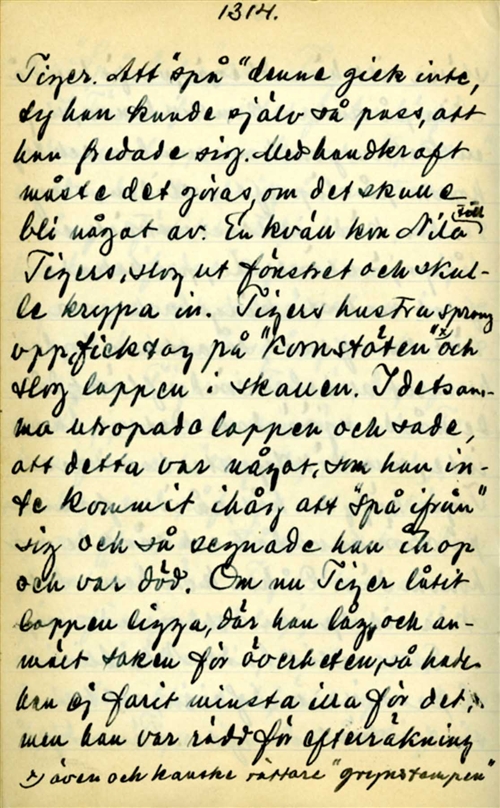 1314.
Tiger. Att "spå" denne gick inte,
ty han kunde själv så pass, att
han fredade sig. Med handkraft
måste det göras, om det skulle
bli något av. En kväll kom Nila till
Tigers, slog ut fönstret och skul-
le krypa in. Tigers hustru sprang
upp, fick tag på "kornstöten" x) och
slog lappen i skallen. I detsam-
ma utropade lappen och sade,
att detta var något, som han in-
te kommit ihåg att "spå ifrån"
sig och så segnade han ihop
och var död. Om nu Tiger låtit
lappen ligga, där han låg, och an-
mält saken för överheten, så hade
han ej farit minsta illa för det,
men han var rädd för efterräkning
x) även och kanske rättare "grynstampen"